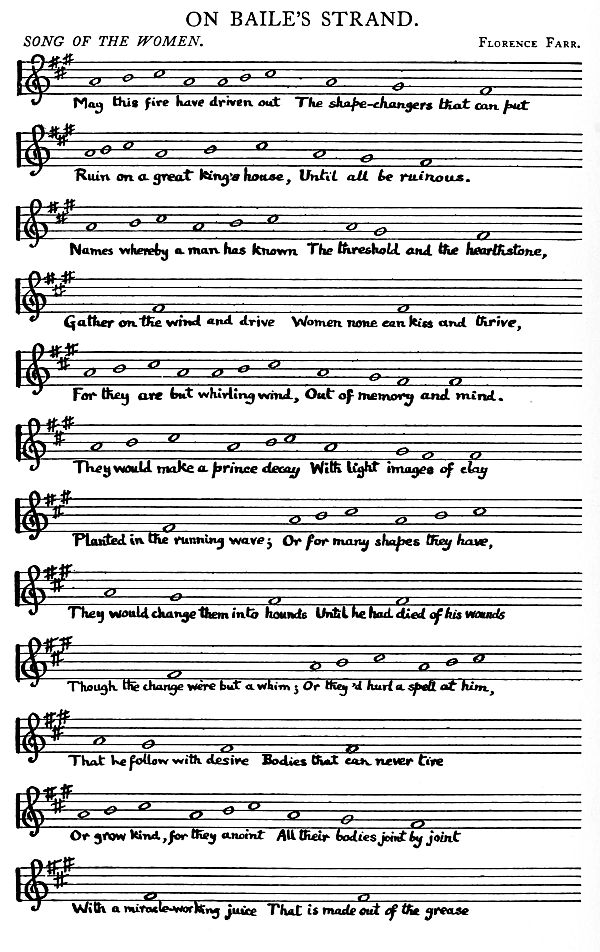 ON BAILE'S STRAND.
SONG OF THE WOMEN. FLORENCE FARR.
May this fire have driven out The shape-changers that can put
Ruin on a great king's house, Until all be ruinous.
Names whereby a man has known The threshold and the hearthstone,
Gather on the wind and drive Women none can kiss and thrive,
For they are but whirling wind, Out of memory and mind.
They would make a prince decay With light images of clay
Planted in the running wave; Or for many shapes they have,
They would change them into hounds Until he had died of his wounds
Though the change were but a whim; Or they'd hurl a spell at him,
That he follow with desire Bodies that can never tire
Or grow kind, for they anoint All their bodies joint by joint
With a miracle-working juice That is made out of the grease